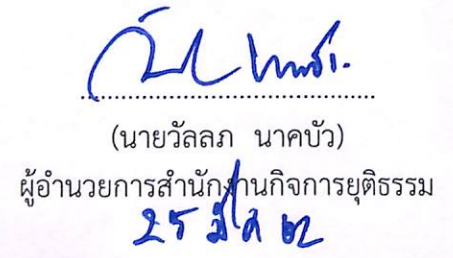 (นายวัลลภ นาคบัว)
ผู้อำนวยการสำนักงานกิจการยุติธรรม
25 มี.ค 62